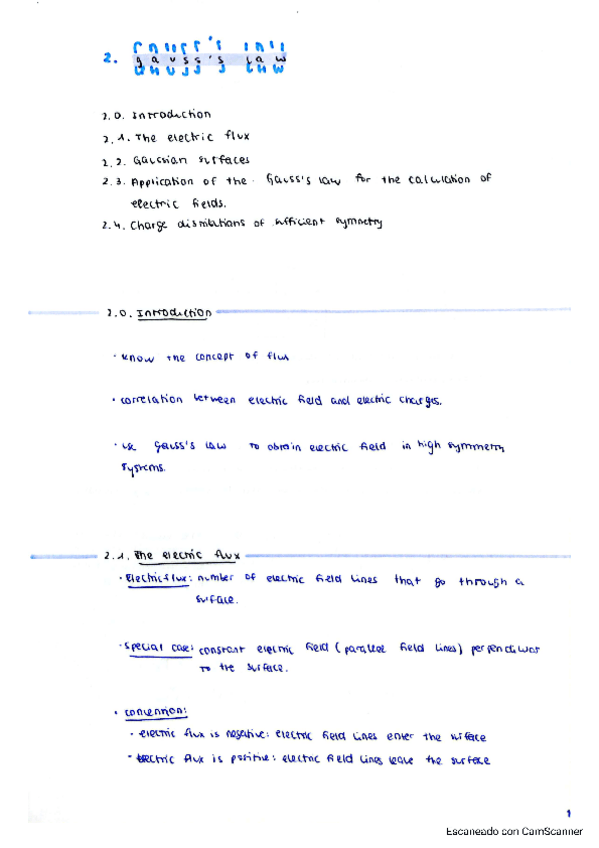 2. gauss's law
2.0. Introduction
2.1. The electric flux
2.2. Gaussian surfaces
2.3. Application of the Gauss's law for the calculation of
electric fields.
2.4. Charge distributions of sufficient symmetry
2.0. Introduction
· Know the concept of flux
· correlation between electric field and electric charges.
· use Gauss's law to obtain electric field in high symmetry
systems.
2.1. The electric flux
· Electric flux: number of electric field lines that go through a
surface.
· special case: constant electric field (parallel field lines) perpendicular
to the surface.
· convention:
· electric flux is negative: electric field lines enter the surface
· electric flux is positive: electric field lines leave the surface
1
Escaneado con CamScanner